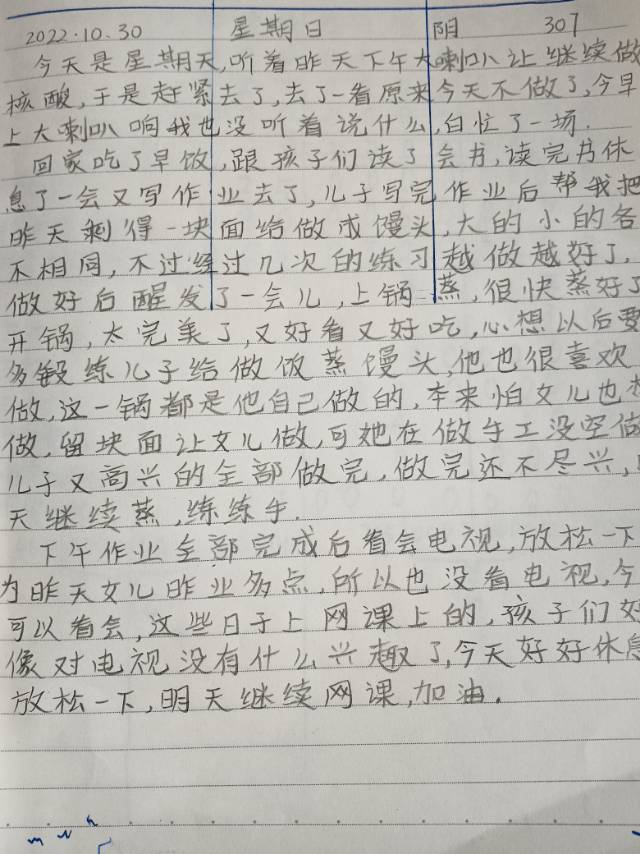 2022.10.30 星期日 阴 307
今天是星期天,听着昨天下午大喇叭让继续做
核酸,于是赶紧去了,去了一看原来今天不做了,今早
上大喇叭响我也没听着说什么,白忙了一场.
回家吃了早饭,跟孩子们读了会书,读完书休
息了一会又写作业去了,儿子写完作业后帮我把
昨天剩得一块面给做成馒头,大的小的各
不相同,不过经过几次的练习越做越好了,
做好后醒发了一会儿,上锅蒸,很快蒸好了
开锅,太完美了,又好看又好吃,心想以后要
多锻练儿子给做饭蒸馒头,他也很喜欢
做,这一锅都是他自己做的,本来怕女儿也想
做,留块面让女儿做,可她在做手工没空做
儿子又高兴的全部做完,做完还不尽兴,
天继续蒸,练练手.
下午作业全部完成后看会电视,放松一下
为昨天女儿昨业多点,所以也没看电视,今
可以看会,这些日子上网课上的,孩子们好
像对电视没有什么兴趣了,今天好好休息
放松一下,明天继续网课,加油.